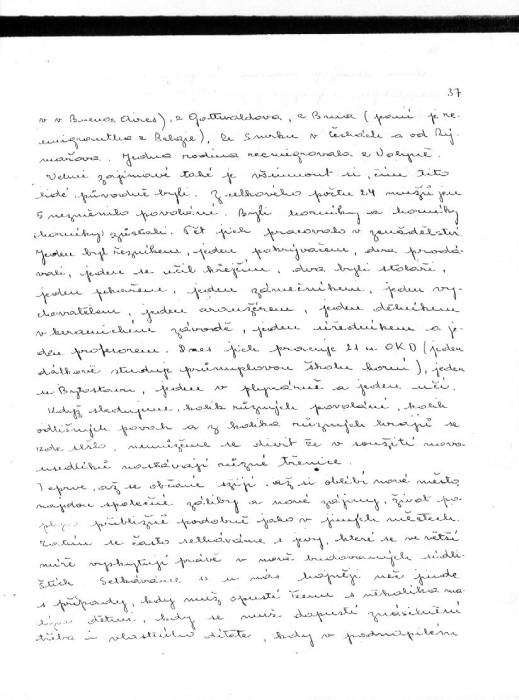 37
v v Buenos Aires), z Gottwaldova, z Brna (paní je re-
emigrantka z Belgie), ze Smrku v Čechách a od Rý-
mařova. Jedna rodina reemigrovala z Volyně.
Velmi zajímavé také je všimnout si, čím tito
lidé původně byli. Z celkového počtu 24 mužů jen
5 nezměnilo povolání. Byli horníky a horníky
(horníky) zůstali. Pět jich pracovalo v zemědělství
jeden byl řezníkem, jeden pokrývačem, dva prodá-
vali, jeden se učil krejčím, dva byli stolaři,
jeden pekařem, jeden zámečníkem, jeden vy-
chovatelem, jeden aranžérem, jeden dělníkem
v keramickém závodě, jeden úředníkem a je-
den profesorem. Dnes jich pracuje 21 u OKD (jeden
dálkově studuje průmyslovou školu horní), jeden
u Bytostavu, jeden v plynárně a jeden učí.
Když sledujeme, kolik různých povolání, kolik
odlišných povah a z kolika různých krajů se
zde sešlo, nemůžeme se divit že v soužití novo-
usedlíků nastávají různé třenice.
Teprve, až se občané sžijí, až si oblíbí nové město
najdou společné záliby a nové zájmy, život po-
plyne přibližně podobně jako v jiných městech.
Zatím se často setkáváme s jevy, které se ve větší
míře vyskytují právě v nově budovaných sídli-
štích. Setkáváme se u nás hojněji než jinde
s případy, kdy muž opustí ženu s několika ma-
lými dětmi, kdy se muž dopustí znásilnění
třeba i vlastního dítěte, kdy v podnapilém